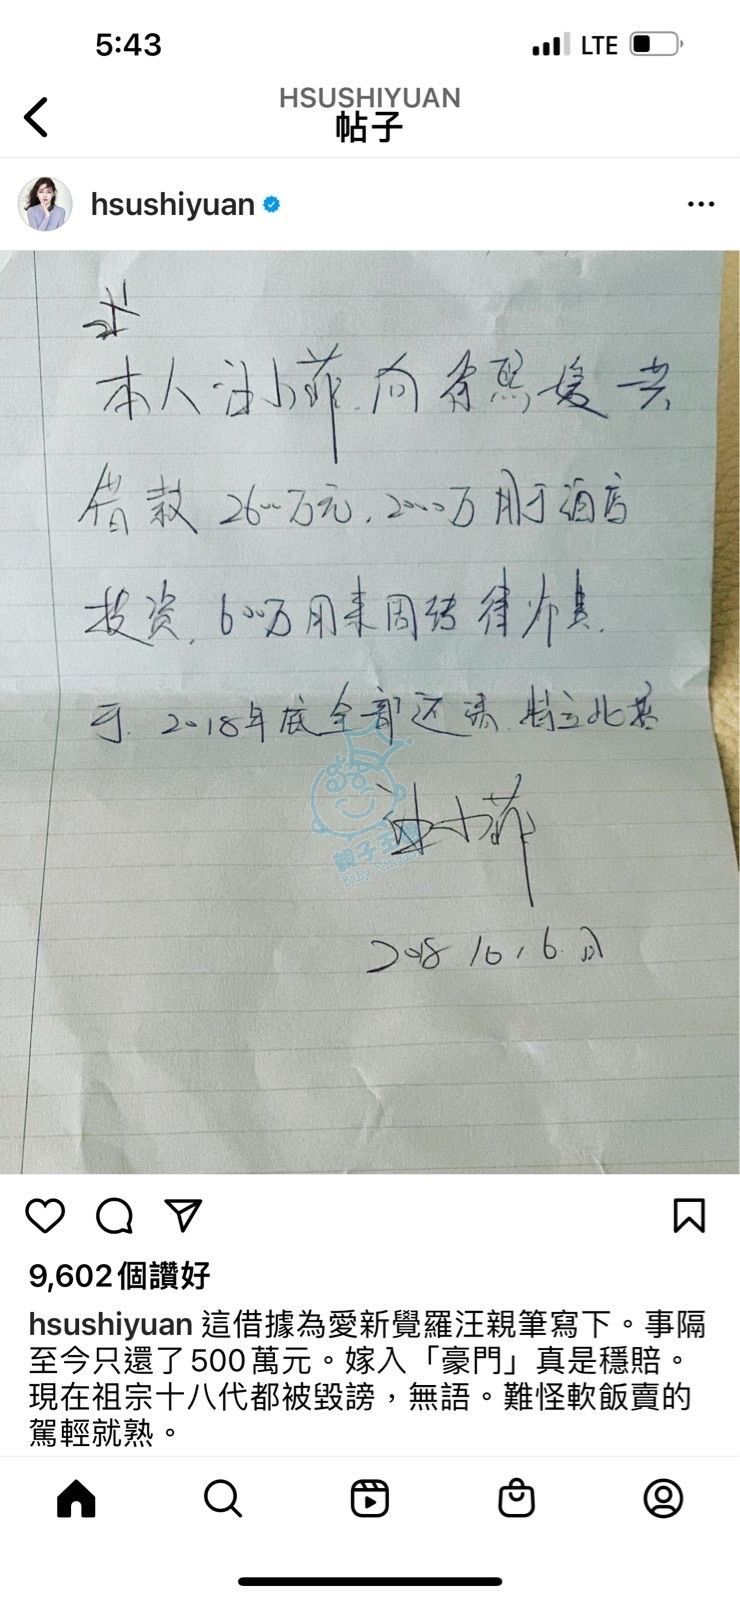 5:43
LTE
HSUSHIYUAN
帖子
hsushiyuan
本人汪小菲.向徐熙媛共
借款2600万元,2000万用于酒店
投资,600万用来周转律师费.
于.2018年底全部还清.特立此据
親子王國
Baby Kingdom
汪小菲
2018 10,6日
9,602個讚好
hsushiyuan 這借據為愛新覺羅汪親筆寫下。事隔
至今只還了500萬元。嫁入「豪門」真是穩賠。
現在祖宗十八代都被毀謗，無語。難怪軟飯賣的
駕輕就熟。